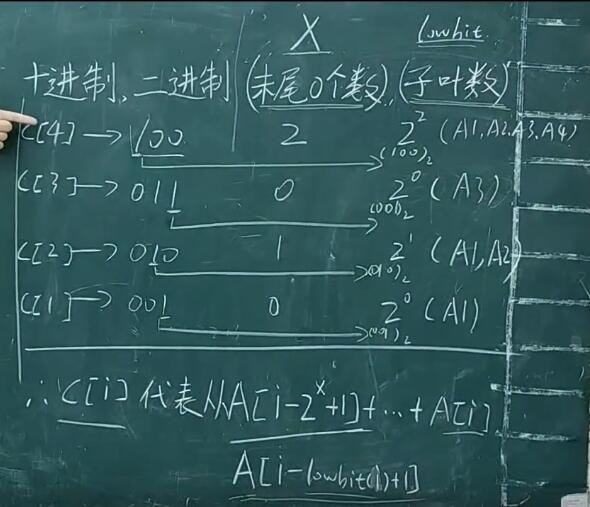 X lowbit
十进制、二进制 (末尾0个数),(子叶数)
C[4] → 100 2 2^2 (A1,A2,A3,A4)
(100)₂
C[3] → 011 0 2^0 (A3)
(001)₂
C[2] → 010 1 2^1 (A1,A2)
(010)₂
C[1] → 001 0 2^0 (A1)
(001)₂
∴ C[i] 代表从A[i-2^x+1]+…+A[i]
A[i-lowbit(i)+1]